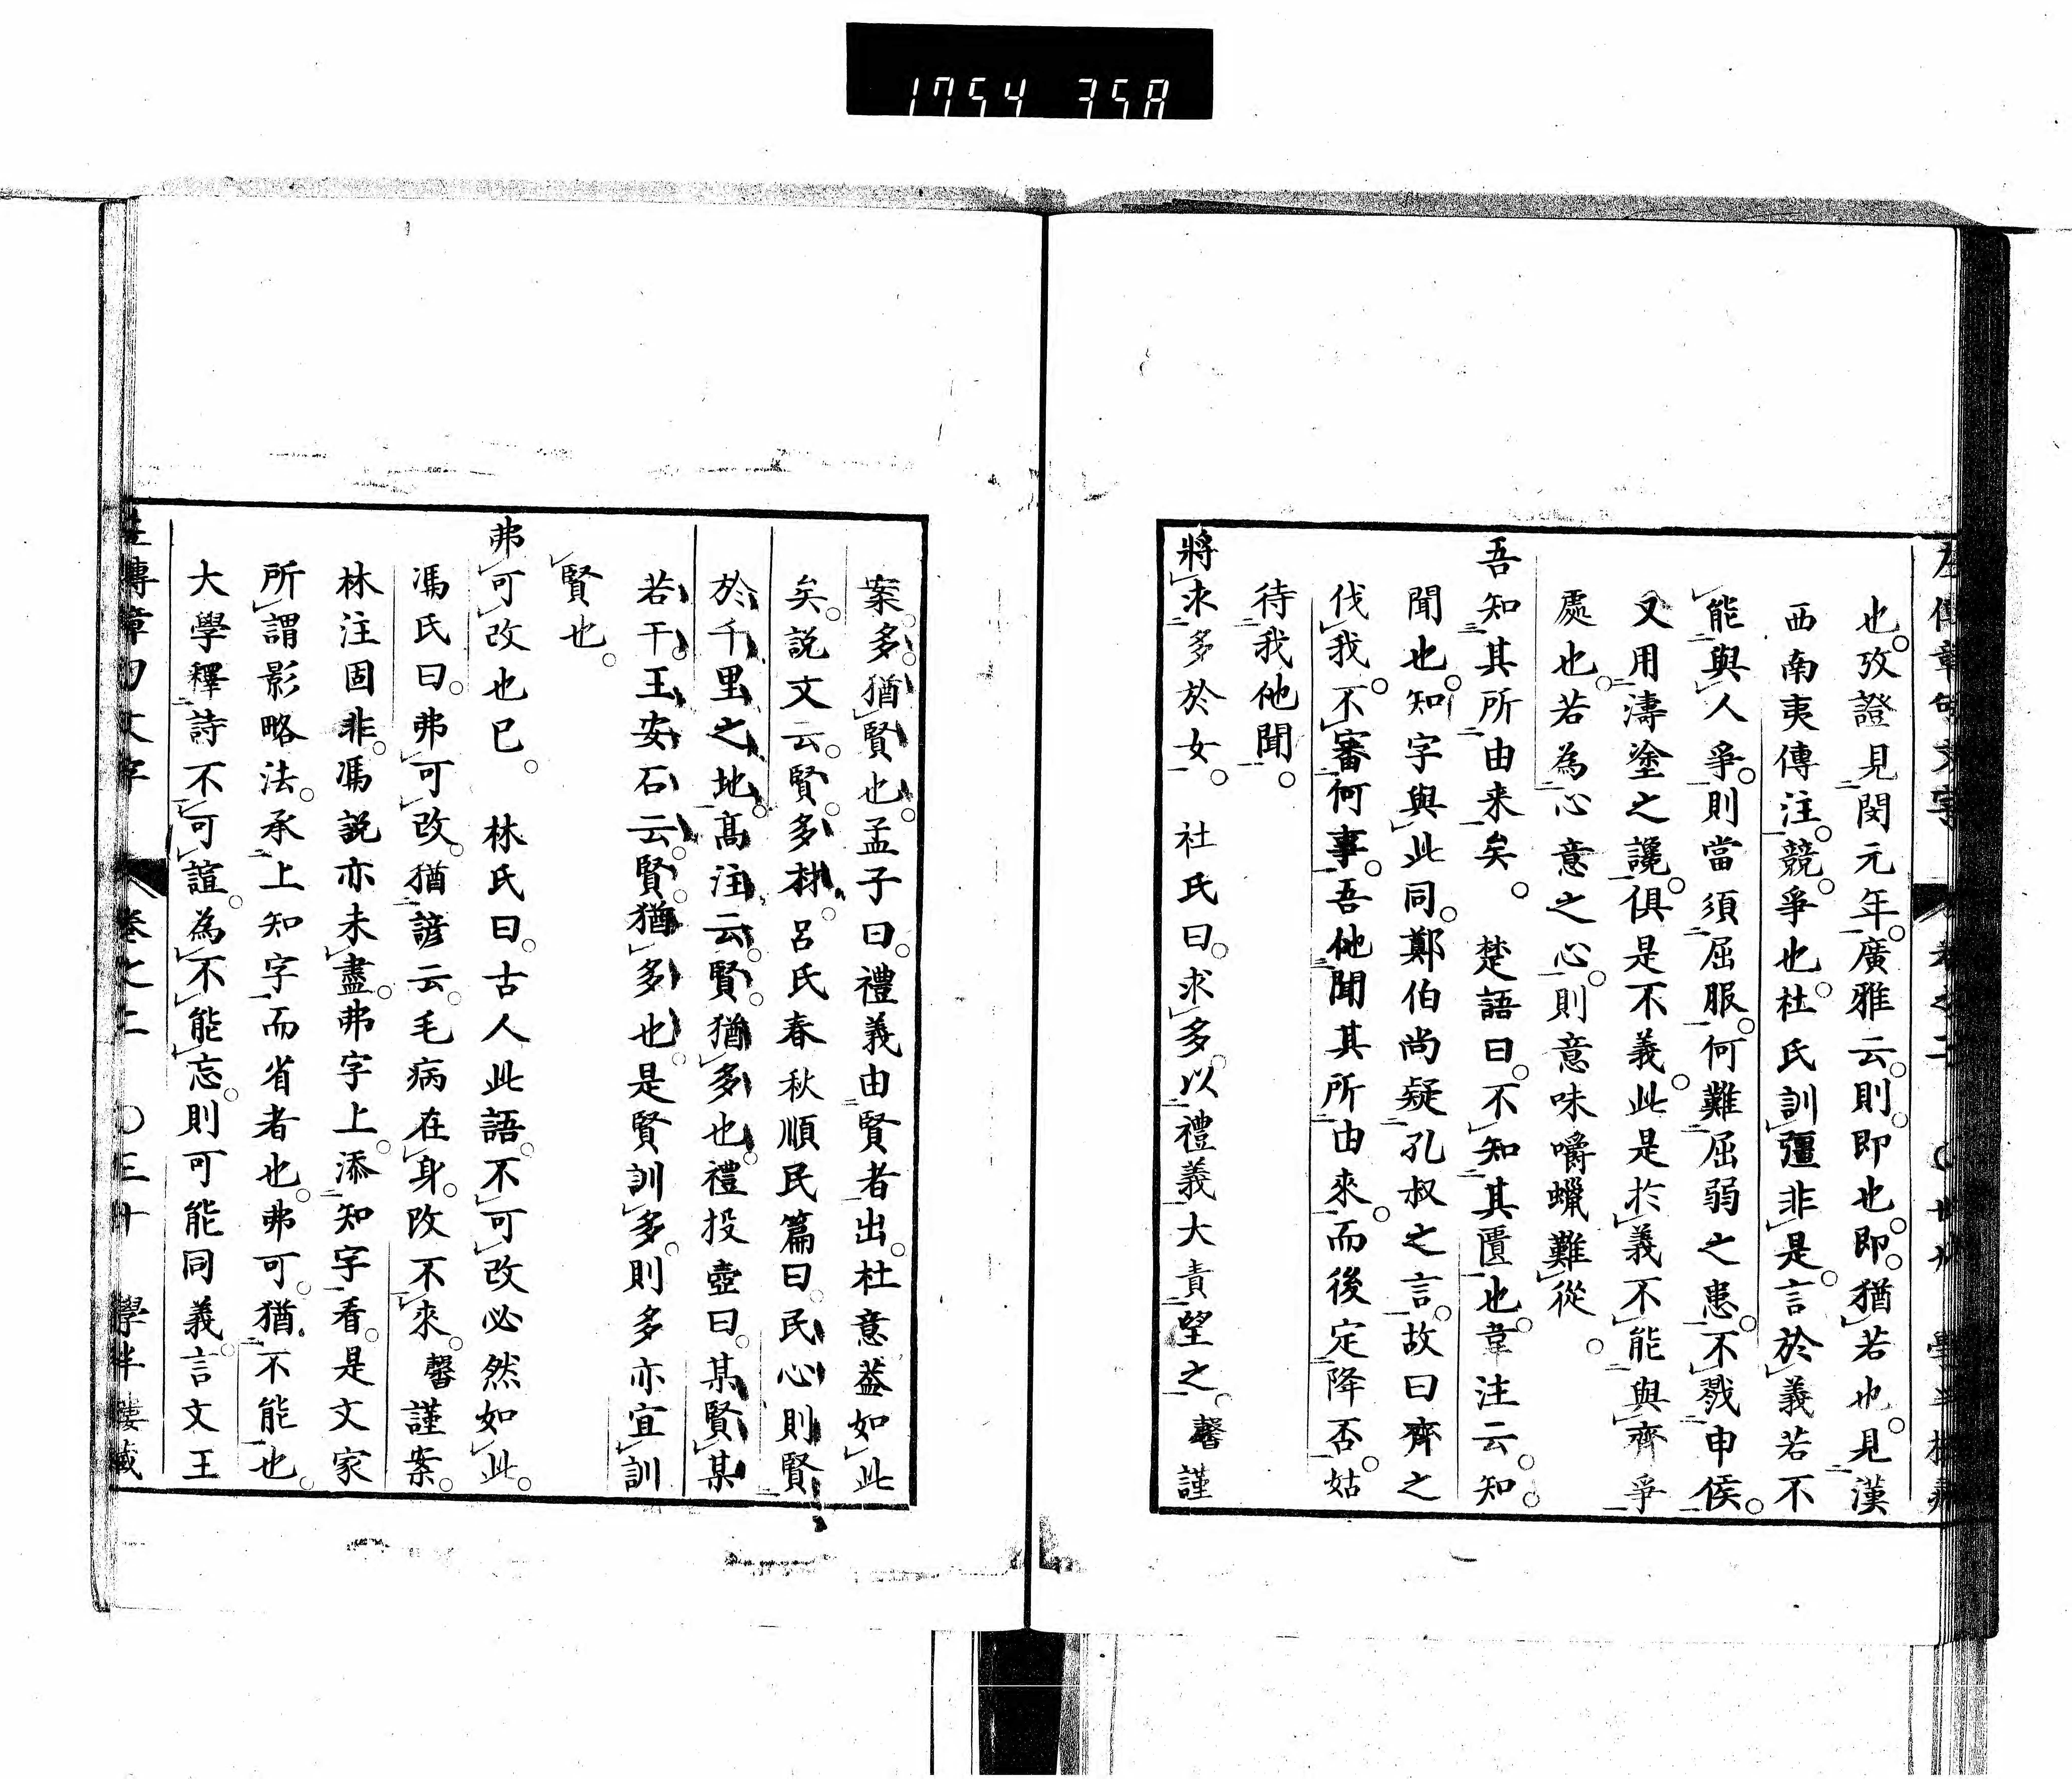 1754 358
也。攷證見閔元年。廣雅云。則。即也。即。猶若也。見漢
西南夷傳注。競。爭也。杜氏訓彊非是。言於義若不
能與人爭。則當須屈服。何難屈弱之患。不戮申侯。
又用濤塗之讒。俱是不義。此是於義不能與齊爭
處也。若為心意之心。則意味嚼蠟難從。
吾知其所由来矣。 楚語曰。不知其匱也。韋注云。知。
聞也。知字與此同。鄭伯尚疑孔叔之言。故曰齊之
伐我。不審何事。吾他聞其所由來。而後定降否。姑
待我他聞。
將求多於女。 社氏曰。求多。以禮義大責望之。馨謹
案。多。猶賢也。孟子曰。禮義由賢者出。杜意蓋如此
矣。説文云。賢。多材。呂氏春秋順民篇曰。民心則賢
於千里之地。高注云。賢。猶多也。禮投壺曰。某賢某
若干。王安石云。賢。猶多也。是賢訓多。則多亦宜訓
賢也。
弗可改也已。 林氏曰。古人此語。不可改必然如此。
馮氏曰。弗可改。猶諺云。毛病在身。改不來。馨謹案。
林注固非。馮説亦未盡。弗字上。添知字看。是文家
所謂影略法。承上知字而省者也。弗可。猶不能也。
大學釋詩不可諠。為不能忘。則可能同義。言文王
左傳章句文字 卷之二 〇三十 學半樓藏